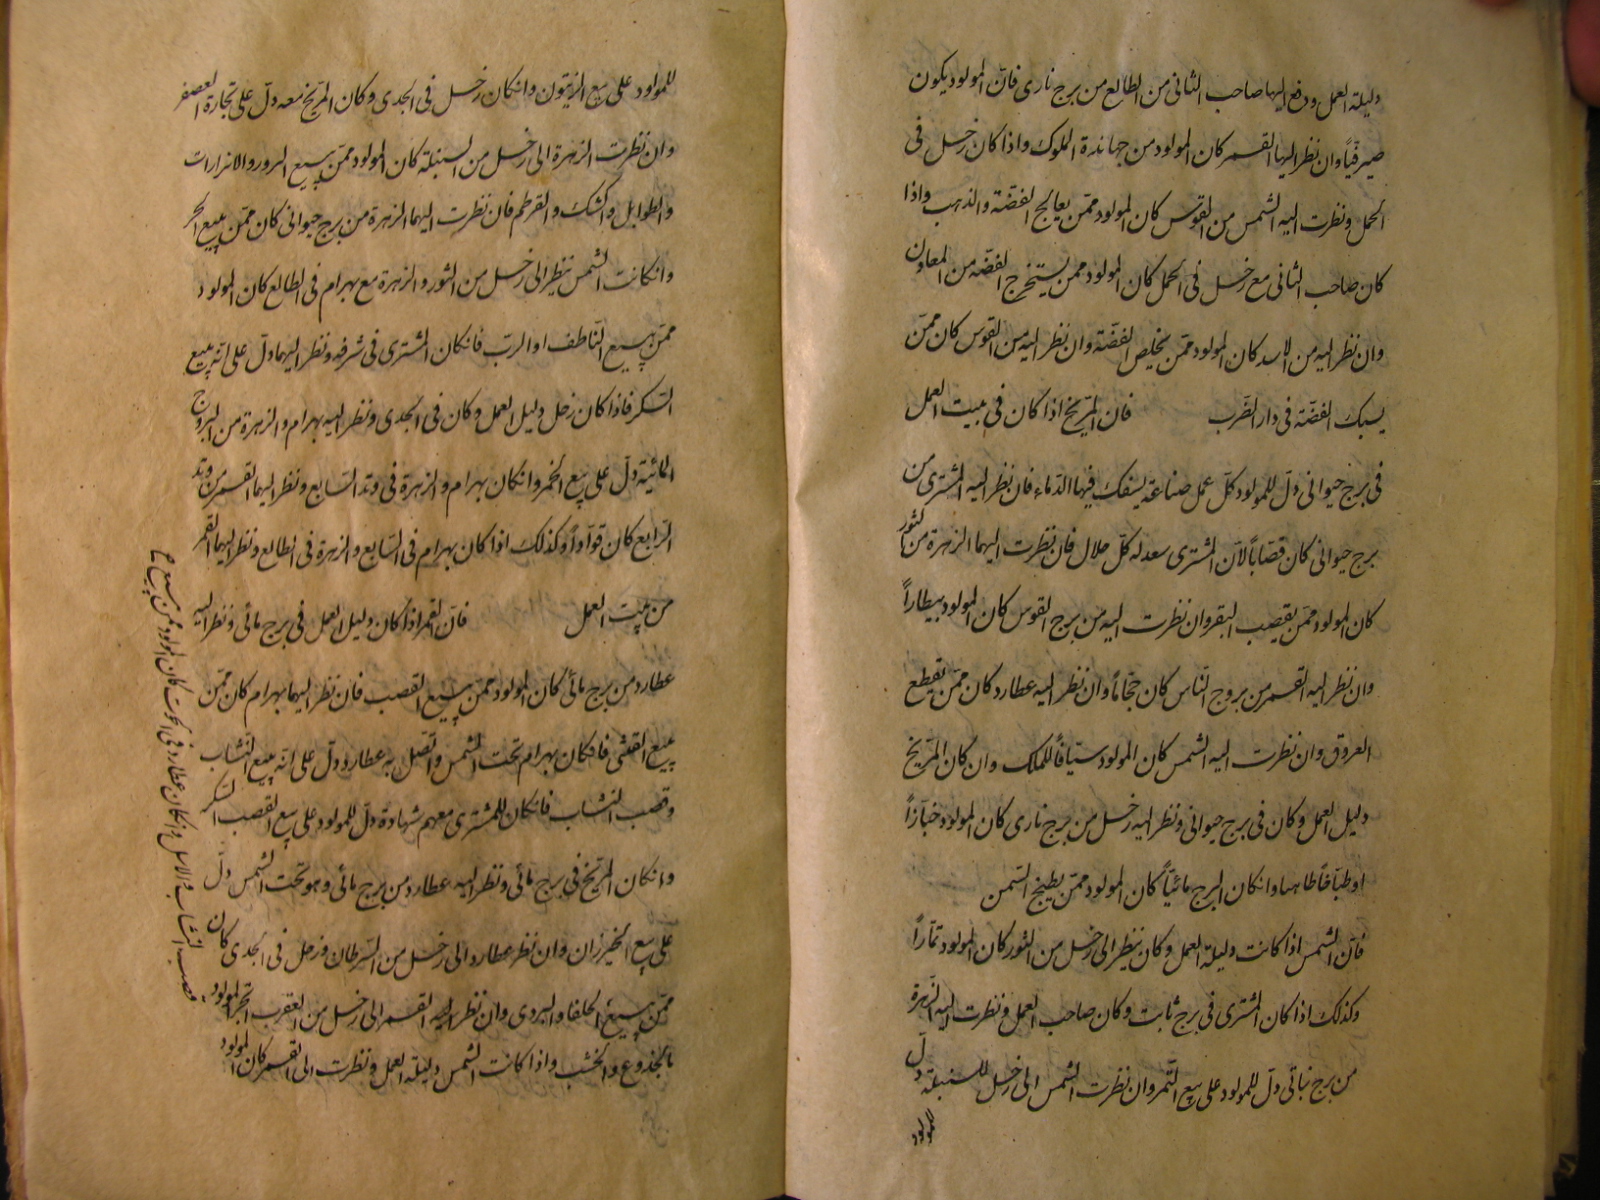 دليلة العمل ودفع اليها صاحب الثانى من الطالع من برج نارى فانّ المولود يكون
صيرفيّاً وان نظر اليها القمر كان المولود من جهابذة الملوك واذا كان زحل فى
الحمل ونظرت اليه الشمس من القوس كان المولود ممّن يعالج الفضّة والذهب واذا
كان صاحب الثانى مع زحل فى الحمل كان المولود ممن يستخرج الفضّه من المعاون
وان نظر اليه من الاسد كان المولود ممّن يخلّص الفضّة وان نظر اليه من القوس كان ممّن
يسبك الفضّة فى دار الضّرب فان المرّيخ اذا كان فى بيت العمل
فى برج حيوانى دلّ للمولود كلّ عمل صناعة يسفك فيها الدّماء فان نظر اليه المشترى من
برج حيوانى كان قصّاباً لانّ المشترى سعد له كلّ حلال فان نظرت اليهما الزهرة من الثور
كان المولود ممّن يقصب البقر وان نظرت اليه من برج القوس كان المولود بيطاراً
وان نظر اليه القمر من بروج الناس كان حجّاماً وان نظر اليه عطارد كان ممّن يقطع
العروق وان نظرت اليه الشمس كان المولود سيّافاً للملك وان كان المرّيخ
دليل العمل وكان فى برج حيوانى ونظر اليه زحل من برج نارى كان المولود خبّازاً
او طبّاخاً طاهيا وانكان البرج مائيّاً كان المولود ممّن يطبخ السّمن
فانّ الشمس اذا كانت دليلة العمل وكان ينظر الى زحل من الثور كان المولود تمّاراً
وكذلك اذا كان المشترى فى برج ثابت وكان صاحب العمل ونظرت اليه الزهرة
من برج نباتى دلّ للمولود على بيع التّمر وان نظرت الشمس الى زحل للسنبلة دلّ
للمولود
للمولود على بيع الزيتون وانكان زحل فى الجدى وكان المرّيخ معه دلّ على تجارة العصفر
وان نظرت الزهرة الى زحل من السنبلة كان المولود ممّن يبيع البرور والابزارات
والطوابل والكشك والقرطم فان نظرت اليهما الزهرة من برج حيوانى كان ممّن يبيع
وانكانت الشمس تنظر الى زحل من الثور والزهرة مع بهرام فى الطالع كان المولود
ممّن يبيع النّاطف او الربّ فانكان المشترى فى شرفه ونظر اليهما دلّ على انّه يبيع
السّكر فاذا كان زحل دليل العمل وكان فى الجدى ونظر اليه بهرام والزهرة من البروج
المائيّة دلّ على بيع الخمر وانكان بهرام والزهرة فى وتد السّابع ونظر اليهما القمر من وتد
الرّابع كان قوّاداً وكذلك اذا كان بهرام فى السّابع والزهرة فى الطالع ونظر اليهما القمر
من بيت العمل فانّ القمر اذا كان دليل العمل فى برج مائى ونظر اليه
عطارد من برج مائىّ كان المولود ممّن يبيع القصب فان نظر اليهما بهرام كان ممّن
يبيع القسّى فانكان بهرام تحت الشمس واتّصل به عطارد دلّ على انّه يبيع النّشاب
وقصب النشاب فانكان للمشترى معهم شهادة دلّ للمولود على بيع القصب السّكر
وانكان المرّيخ فى برج مائى ونظر اليه عطارد من برج مائى وهو تحت الشمس دلّ
على بيع الخيزران وان نظر عطارد الى زحل من السّرطان وزحل فى الجدى كان
ممّن يبيع الحلفا والبردى وان نظر اليه القمر الى زحل من العقرب اتّجر المولود
بالجذوع والخشب واذا كانت الشمس دليلة العمل ونظرت الى القمر كان المولود
قصب النشاب والاسل وانكان عطارد فى الحوت كان المولود ممن يبيع